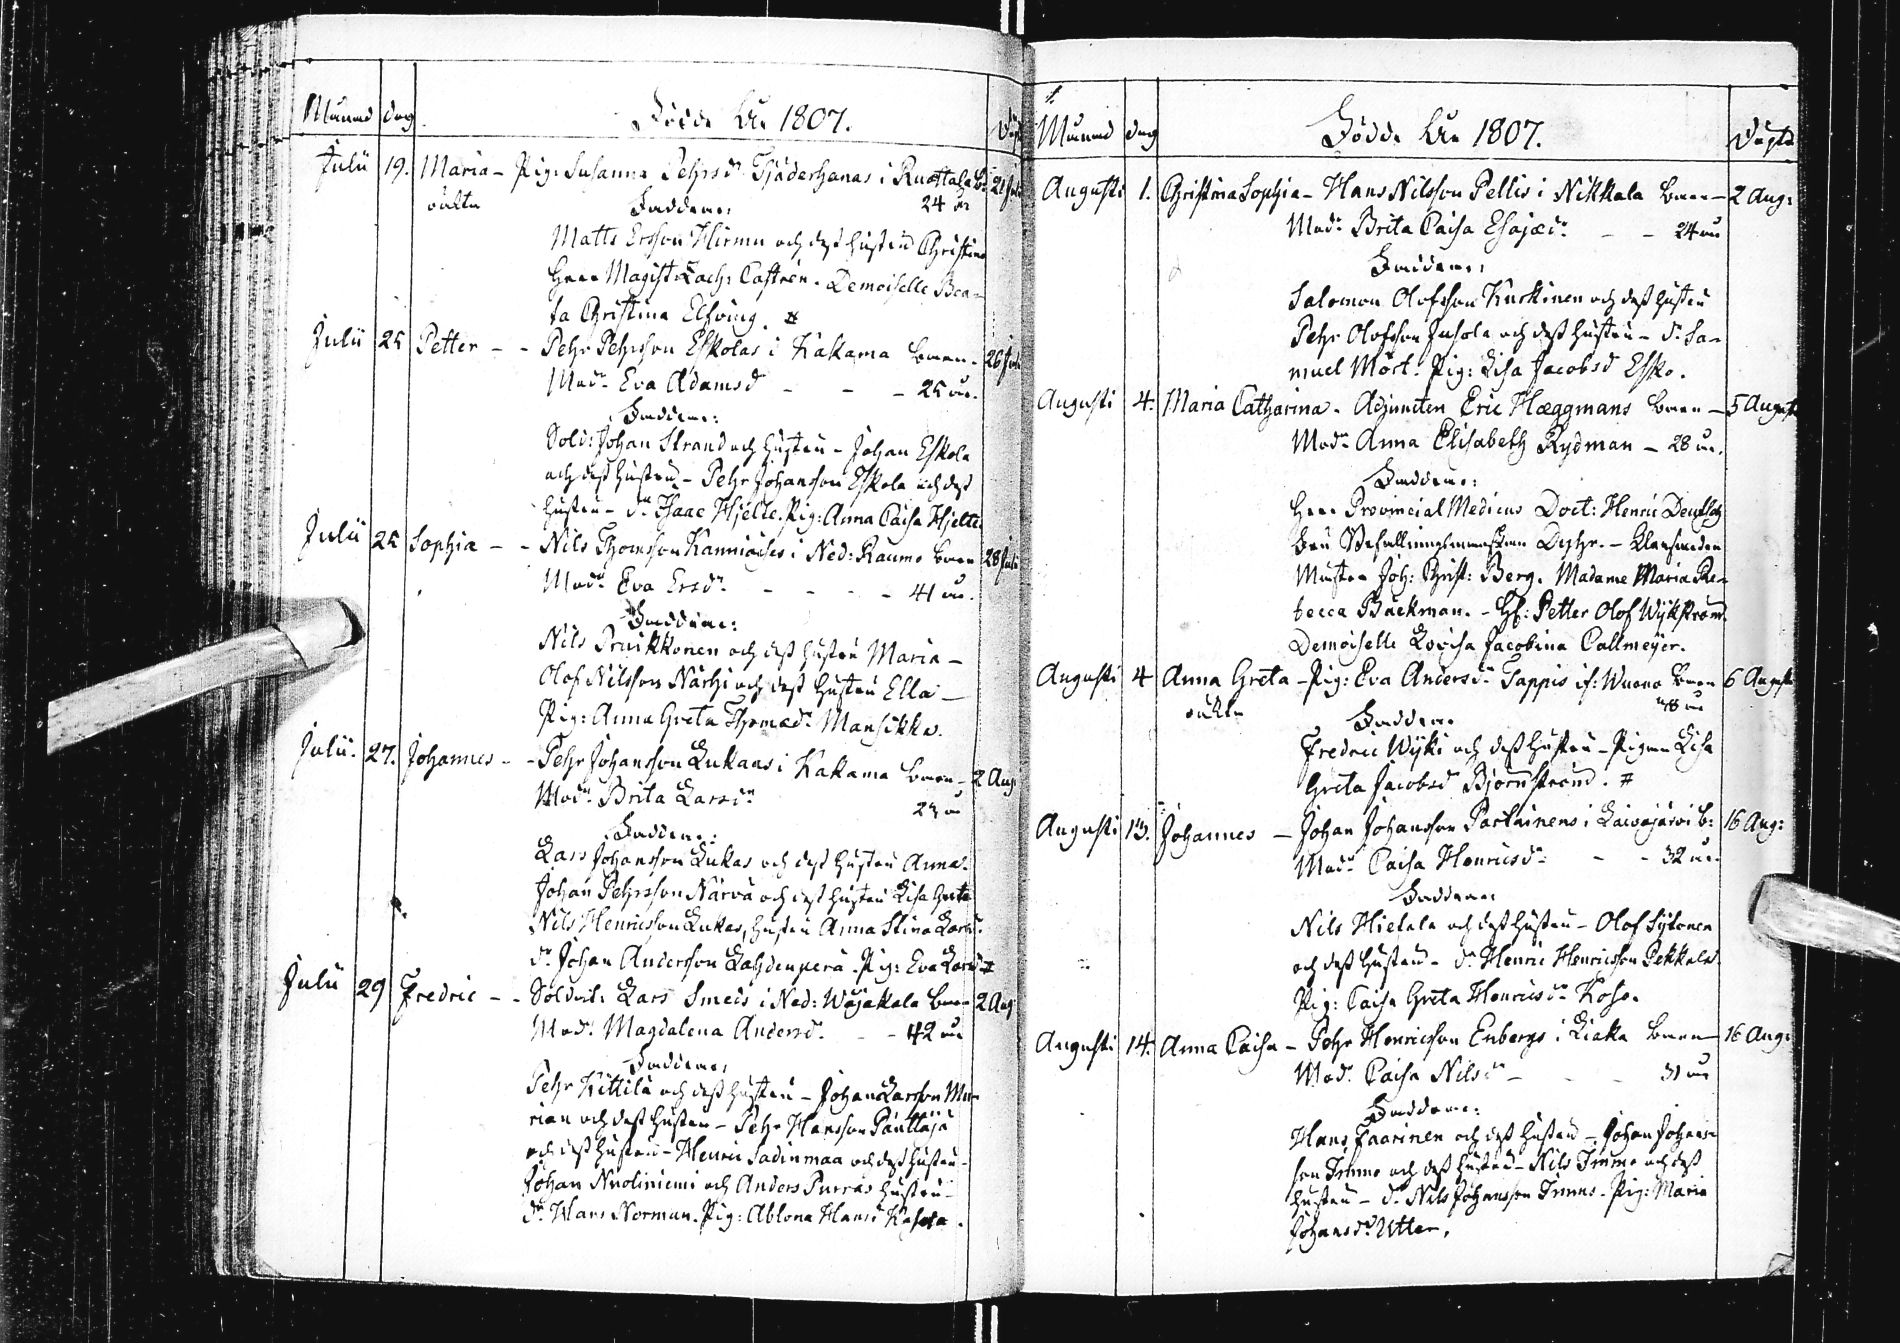 Månad dag Födde År 1807. Döpt
Julii 19. Maria - Pig: Susanna Pehrsdr Tjäderhanas i Ruottala B: 21 Juli
oäkta Faddrar: 24 år
Matts Ersson Hirmu och dess hustru Christina
Herr Magist: Zachs Castrén. Demoiselle Bea-
ta Christina Elfving. #
Julii 25 Petter - - Pehr Pehrsson Eskolas i Kakama barn - 26 Juli
Modr Eva Adamsdr - - - 25 år.
Faddrar:
Sold: Johan Strand och hustru - Johan Eskola
och dess hustru - Pehr Johansson Eskola och dess
hustru - dr Isaac Hjelte. Pig: Anna Caisa Hjelte.
Julii 25 Sophia - - Nils Thomsson Kanniaises i Ned: Raumo barn 28 Juli
Modr Eva Ersdr - - - - 41 år.
Faddrar:
Nils Pruikkonen och dess hustru Maria -
Olof Nilsson Närhi och dess hustru Ella -
Pig: Anna Greta Thomædr Mansikka.
Julii. 27. Johannes - - Pehr Johansson Lukaas i Kakama barn - 2 Aug
Modr Brita Larsdr
Faddrar:
Lars Johansson Lukas och dess hustru Anna.
Johan Pehrsson Närvä och dess hustru Lisa Greta
Nils Henricsson Lukas, hustru Anna Stina Larsdr.
dr Johan Andersson Lahdenperä. Pig: Eva Larsdr #
Julii 29 Fredric - - Soldat: Lars Smeds i Ned: Wojakala barn 2 Aug
Mod: Magdalena Andersdr. - - 42 år
Faddrar:
Pehr Kittilä och dess hustru - Johan Larsson Mu-
rian och dess hustru - Pehr Hansson Panttaja
och dess hustru - Henric Sadinmaa och dess hustru -
Johan Nuoliniemi och Anders Purras hustru -
dr Hans Norman. Pig: Ablona Hansdr
Månad dag Födde År 1807. Döpte
Augusti 1. Christina Sophia - Hans Nilsson Pellis i Nikkala barn - 2 Aug:
Modr Brita Caisa Esajædr - - 24 år
Faddrar:
Salomon Olofsson Kurkinen och dess hustru
Pehr Olofsson Juhola och dess hustru - dr Sa-
muel Mört. Pig: Lisa Jacobsd Esko.
Augusti 4. Maria Catharina. Adjuncten Eric Hæggmans barn - 5 Augusti
Modr Anna Elisabeth Rydman - 28 år.
Faddrar:
Herr Provincial Medicus Doct: Henric Deutsch
Fru Befallningsmanskan Dyhr. - Klensmeden
Mäster Joh: Christ: Berg. Madame Maria Re-
becca Backman. - Hr: Petter Olof Wijkström.
Demoiselle Lovisa Jacobina Callmeyer.
Augusti 4 Anna Greta - Pig: Eva Andersdr Tappis if: Wuono barn 6 Augusti
oäkta Faddrar
Fredric Wijki och dess hustru - Pigan Lisa
Greta Jacobsd Björnström. #
Augusti 13. Johannes - Johan Johansson Partainens i Laivajärvi b: 16 Aug:
Modr Caisa Henricsdr - - 32 år
Faddrar:
Nils Hietala och dess hustru - Olof Sytonen
och dess hustru - dr Henric Henricsson Pekkala.
Pig: Caisa Greta Henricsdr Koso.
Augusti 14. Anna Caisa - Pehr Henricsson Enbergs i Liaka barn 16 Aug:
Mod: Caisa Nilsdr - - - 31 år
Faddrar:
Hans Faarinen och dess hustru - Johan Johans-
son Immo och dess hustru - Nils Immo och dess
hustru - dr Nils Johansson Immo - Pig: Maria
Johansdr Utter.